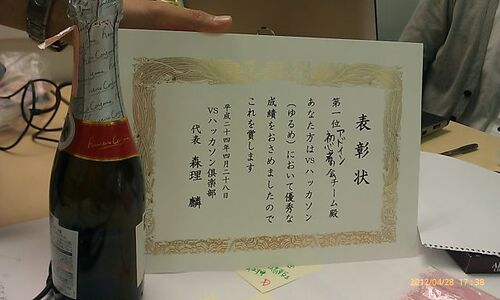 表彰状
第一位 アドイン
初心者会チーム殿
あなた方はVSハッカソン
(ゆるめ)において優秀な
成績をおさめましたので
これを賞します
平成二十四年四月二十八日
VSハッカソン倶楽部
代表 森理 麟
2012/04/28 17:38